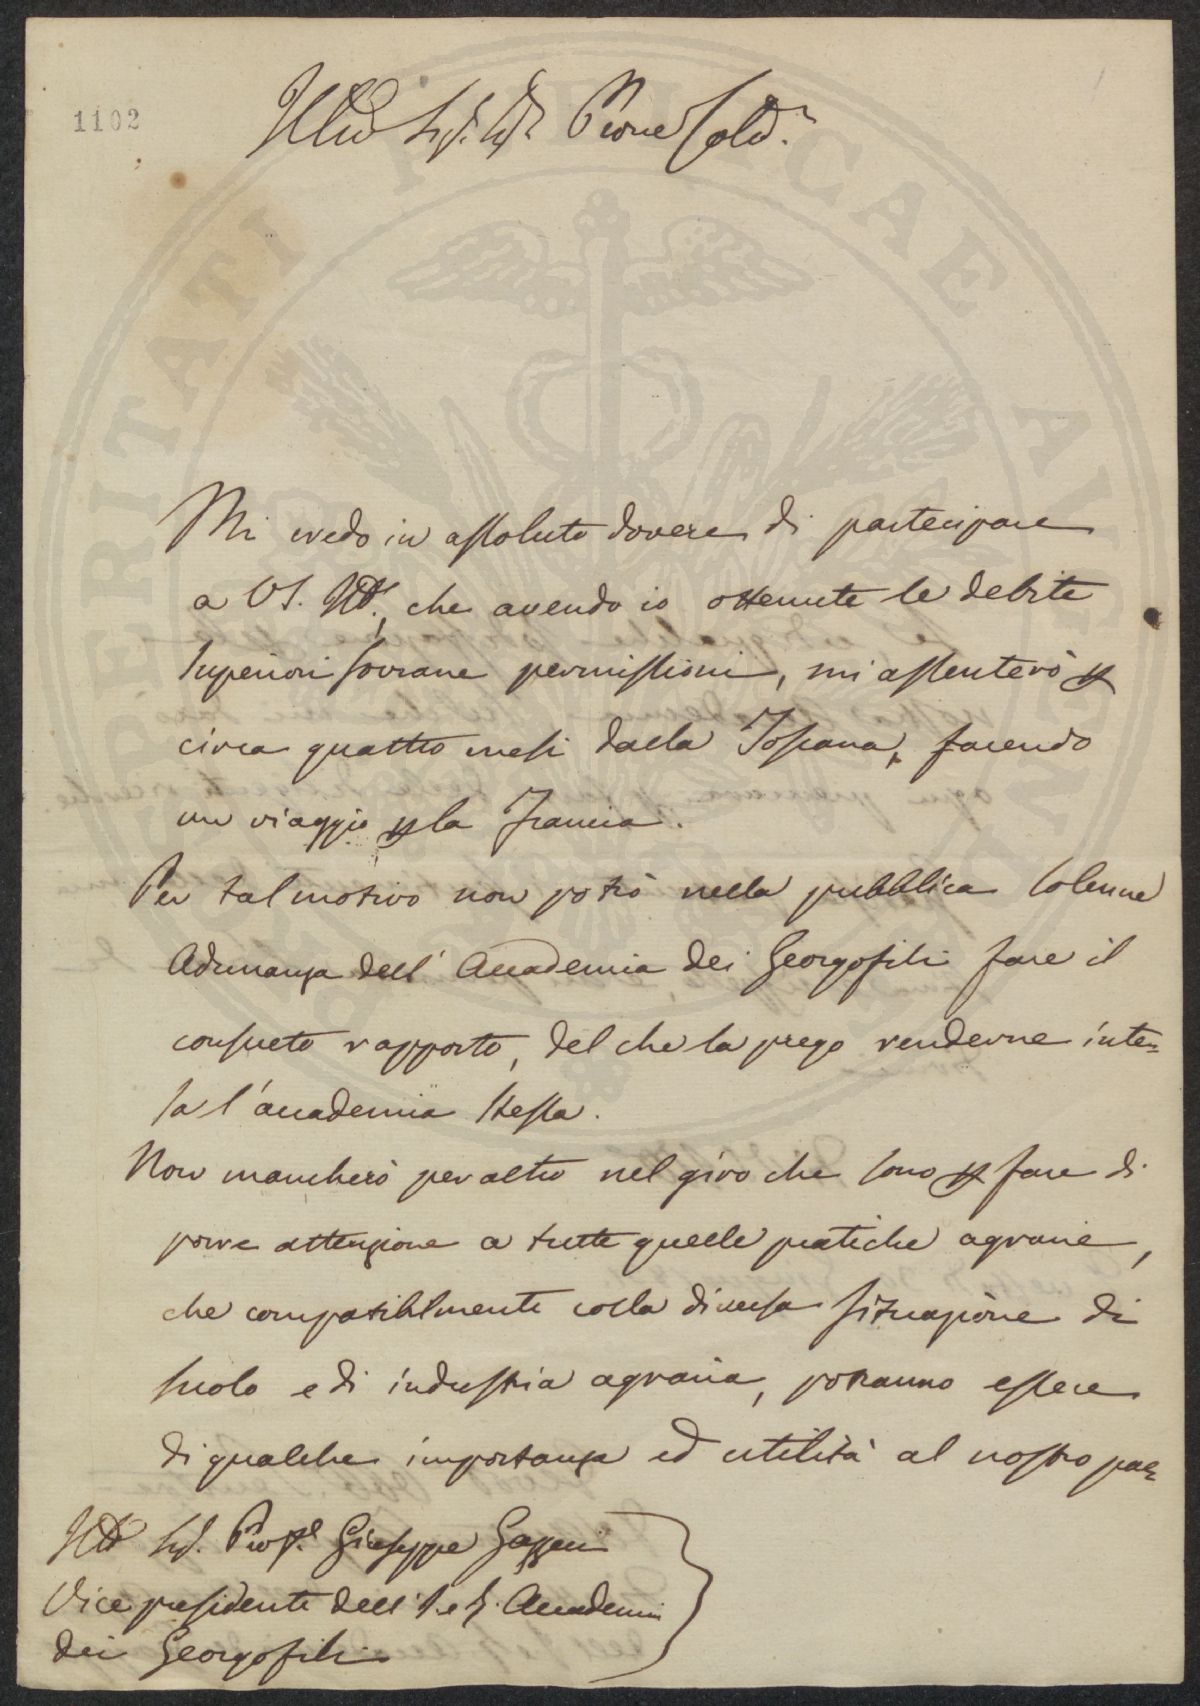 1102
Illmo Sig. Sig. Prone Colmo
Mi credo in assoluto dovere di partecipare
a VS. Illma, che avendo io ottenute le debite
Superiori Sovrane permissioni, mi assenterò p
circa quattro mesi dalla Toscana, facendo
un viaggio p la Francia.
Per tal motivo non potrò nella pubblica Solenne
Adunanza dell' Accademia dei Georgofili fare il
consueto rapporto, del che la prego renderne inte=
sa l'accademia stessa.
Non mancherò per altro nel giro che sono p fare di
porre attenzione a tutte quelle pratiche agrarie,
che compatibilmente colla diversa situazione di
suolo e di industria agraria, potranno essere
di qualche importanza ed utilità al nostro pae=
Illmo Sig. Profe. Giuseppe Gazzeri
Vice presidente dell' I. e R. Accademia
dei Georgofili
PROSPERITATI PUBLICAE AUGENDAE